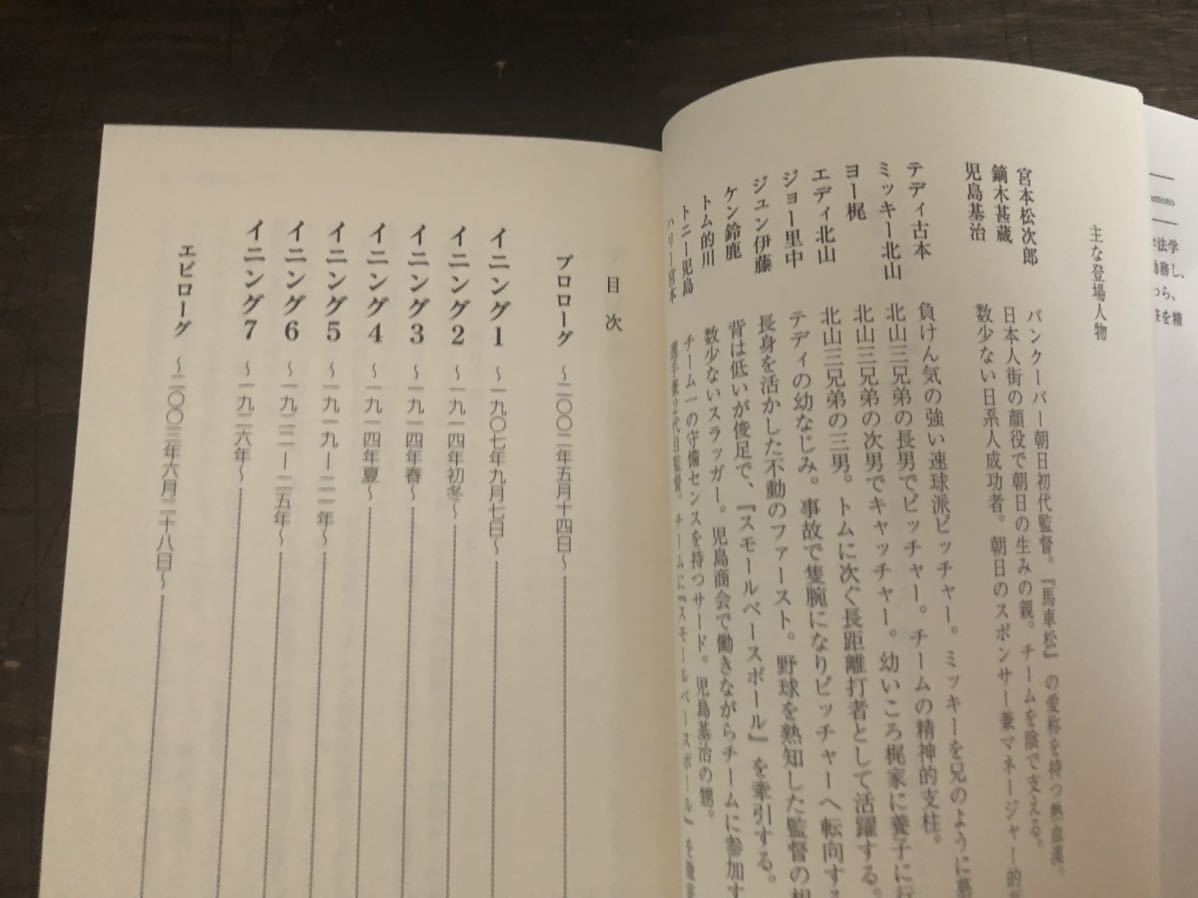 amoto
法学
勤務し、
を精
主な登場人物
宮本松次郎　バンクーバー朝日初代監督。『馬車松』の愛称を持つ熱血漢。
鏑木甚蔵　日本人街の顔役で朝日の生みの親。チームを陰で支える。
児島基治　数少ない日系人成功者。朝日のスポンサー兼マネージャー的
テディ古本　負けん気の強い速球派ピッチャー。ミッキーを兄のように慕
ミッキー北山　北山三兄弟の長男でピッチャー。チームの精神的支柱。
ヨー梶　北山三兄弟の次男でキャッチャー。幼いころ梶家に養子に行
エディ北山　北山三兄弟の三男。トムに次ぐ長距離打者として活躍する。
ジョー里中　テディの幼なじみ。事故で隻腕になりピッチャーへ転向する
ジュン伊藤　長身を活かした不動のファースト。野球を熟知した監督の相
ケン鈴鹿　背は低いが俊足で、『スモールベースボール』を牽引する。
トム的川　数少ないスラッガー。児島商会で働きながらチームに参加す
トニー児島　チーム一の守備センスを持つサード。児島基治の甥。
ハリー宮本　選手兼2代目監督。チームに『スモールベースボール』を
目次
プロローグ　〜二〇〇二年五月十四日〜
イニング1　〜一九〇七年九月七日〜
イニング2　〜一九一四年初冬〜
イニング3　〜一九一四年春〜
イニング4　〜一九一四年夏〜
イニング5　〜一九一九―二一年〜
イニング6　〜一九二二―二五年〜
イニング7　〜一九二六年〜
エピローグ　〜二〇〇三年六月二十八日〜